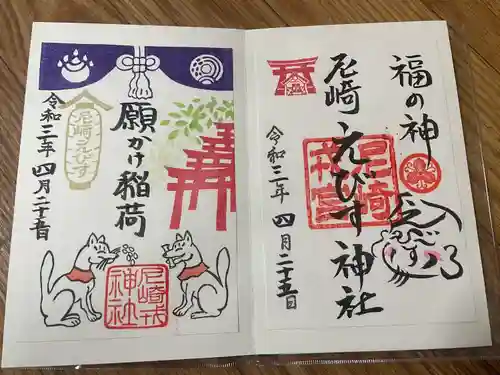 福の神
尼崎えびす神社
令和三年 四月二十五日
尼崎
戎宮
願かけ稲荷
尼崎えびす
令和三年 四月二十五日
尼崎戎
神社